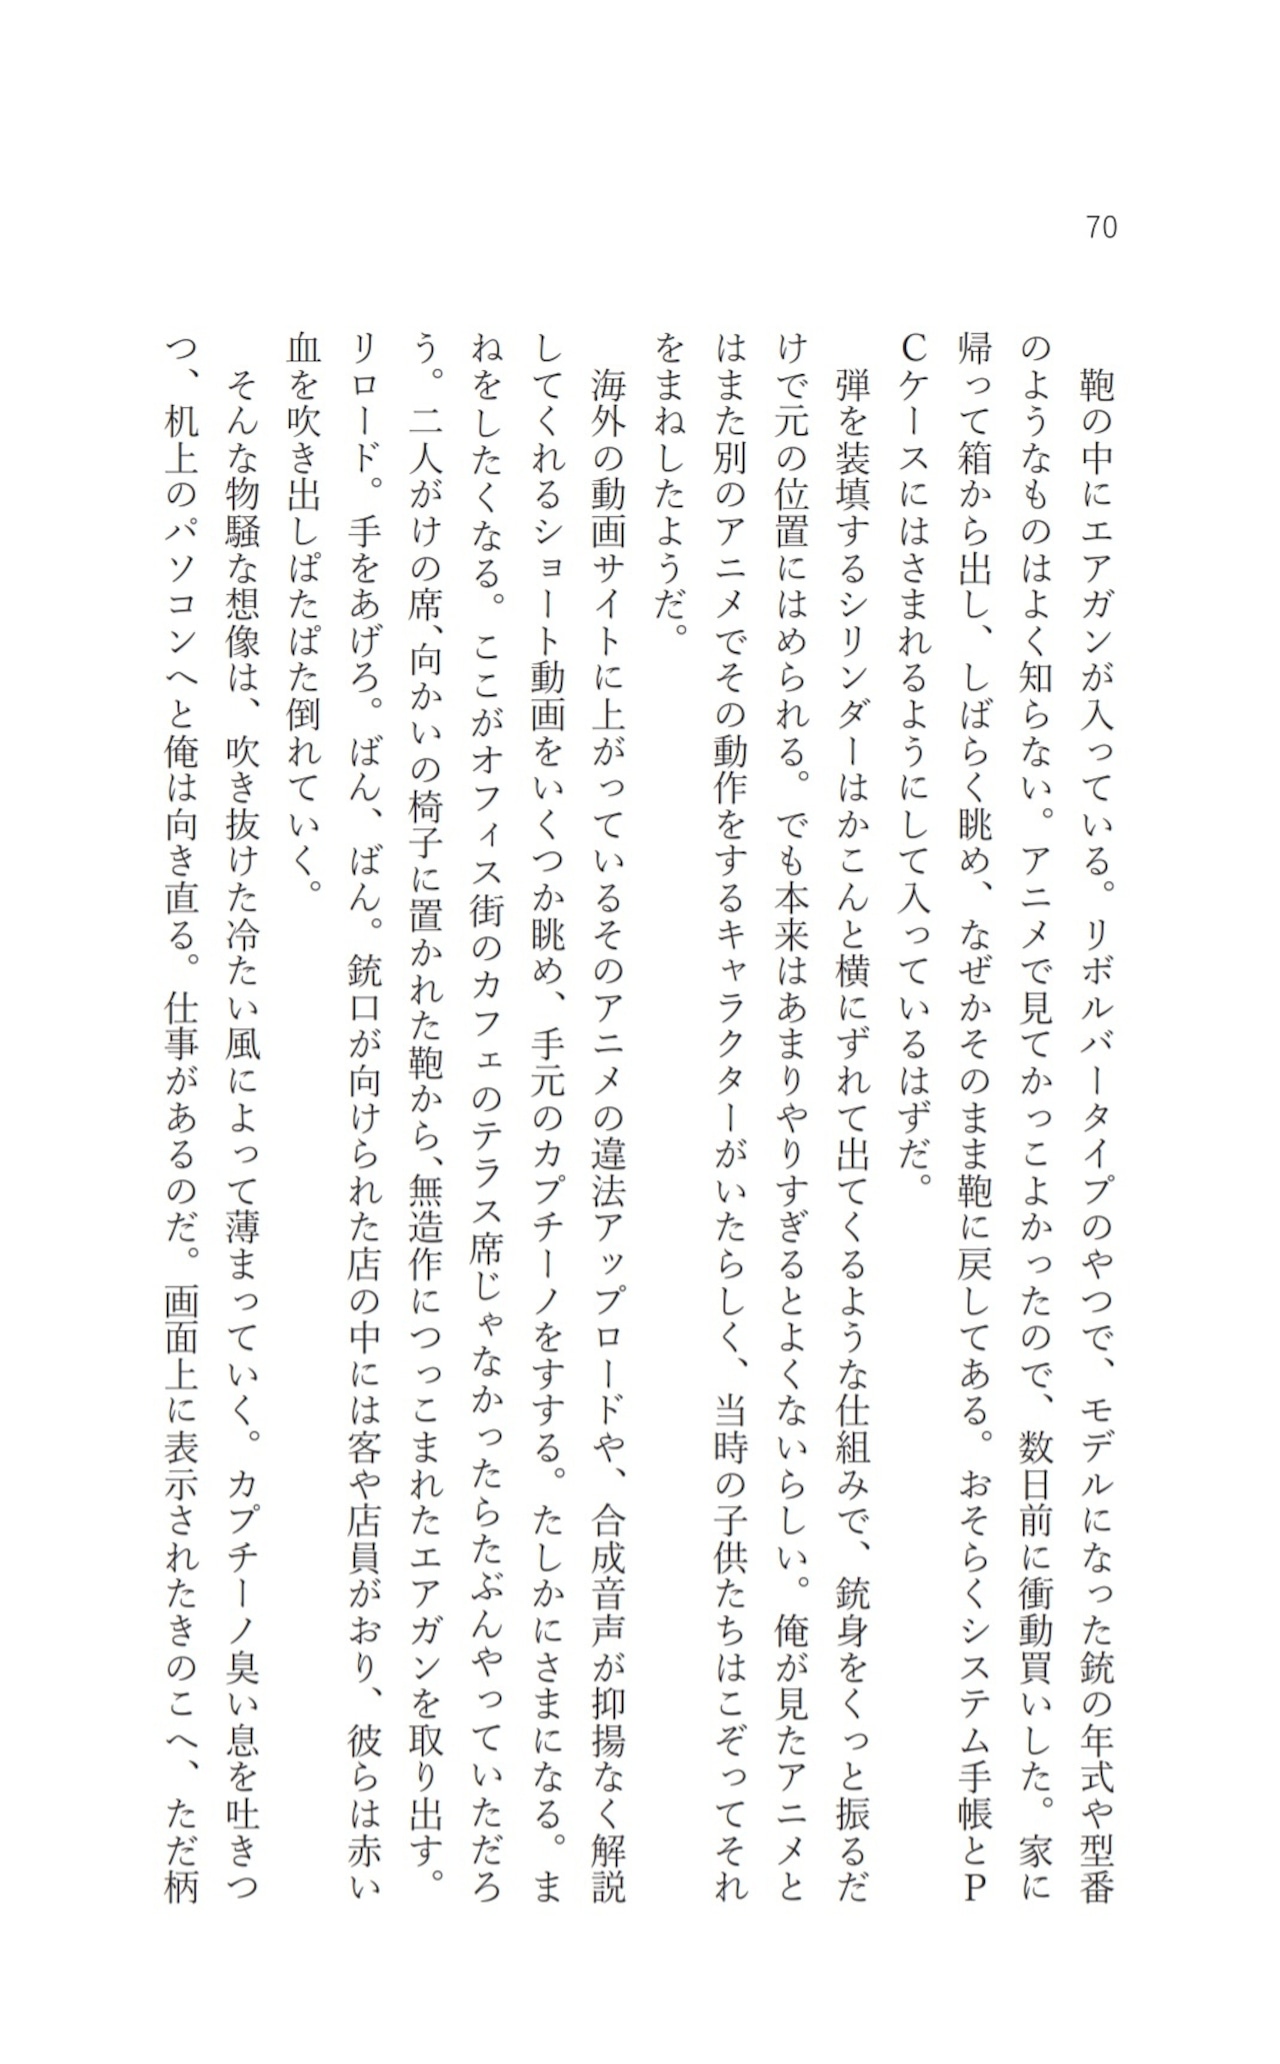 70
　鞄の中にエアガンが入っている。リボルバータイプのやつで、モデルになった銃の年式や型番
のようなものはよく知らない。アニメで見てかっこよかったので、数日前に衝動買いした。家に
帰って箱から出し、しばらく眺め、なぜかそのまま鞄に戻してある。おそらくシステム手帳とＰ
Ｃケースにはさまれるようにして入っているはずだ。
　弾を装填するシリンダーはかこんと横にずれて出てくるような仕組みで、銃身をくっと振るだ
けで元の位置にはめられる。でも本来はあまりやりすぎるとよくないらしい。俺が見たアニメと
はまた別のアニメでその動作をするキャラクターがいたらしく、当時の子供たちはこぞってそれ
をまねしたようだ。
　海外の動画サイトに上がっているそのアニメの違法アップロードや、合成音声が抑揚なく解説
してくれるショート動画をいくつか眺め、手元のカプチーノをすする。たしかにさまになる。ま
ねをしたくなる。ここがオフィス街のカフェのテラス席じゃなかったらたぶんやっていただろ
う。二人がけの席、向かいの椅子に置かれた鞄から、無造作につっこまれたエアガンを取り出す。
リロード。手をあげろ。ばん、ばん。銃口が向けられた店の中には客や店員がおり、彼らは赤い
血を吹き出しぱたぱた倒れていく。
　そんな物騒な想像は、吹き抜けた冷たい風によって薄まっていく。カプチーノ臭い息を吐きつ
つ、机上のパソコンへと俺は向き直る。仕事があるのだ。画面上に表示されたきのこへ、ただ柄